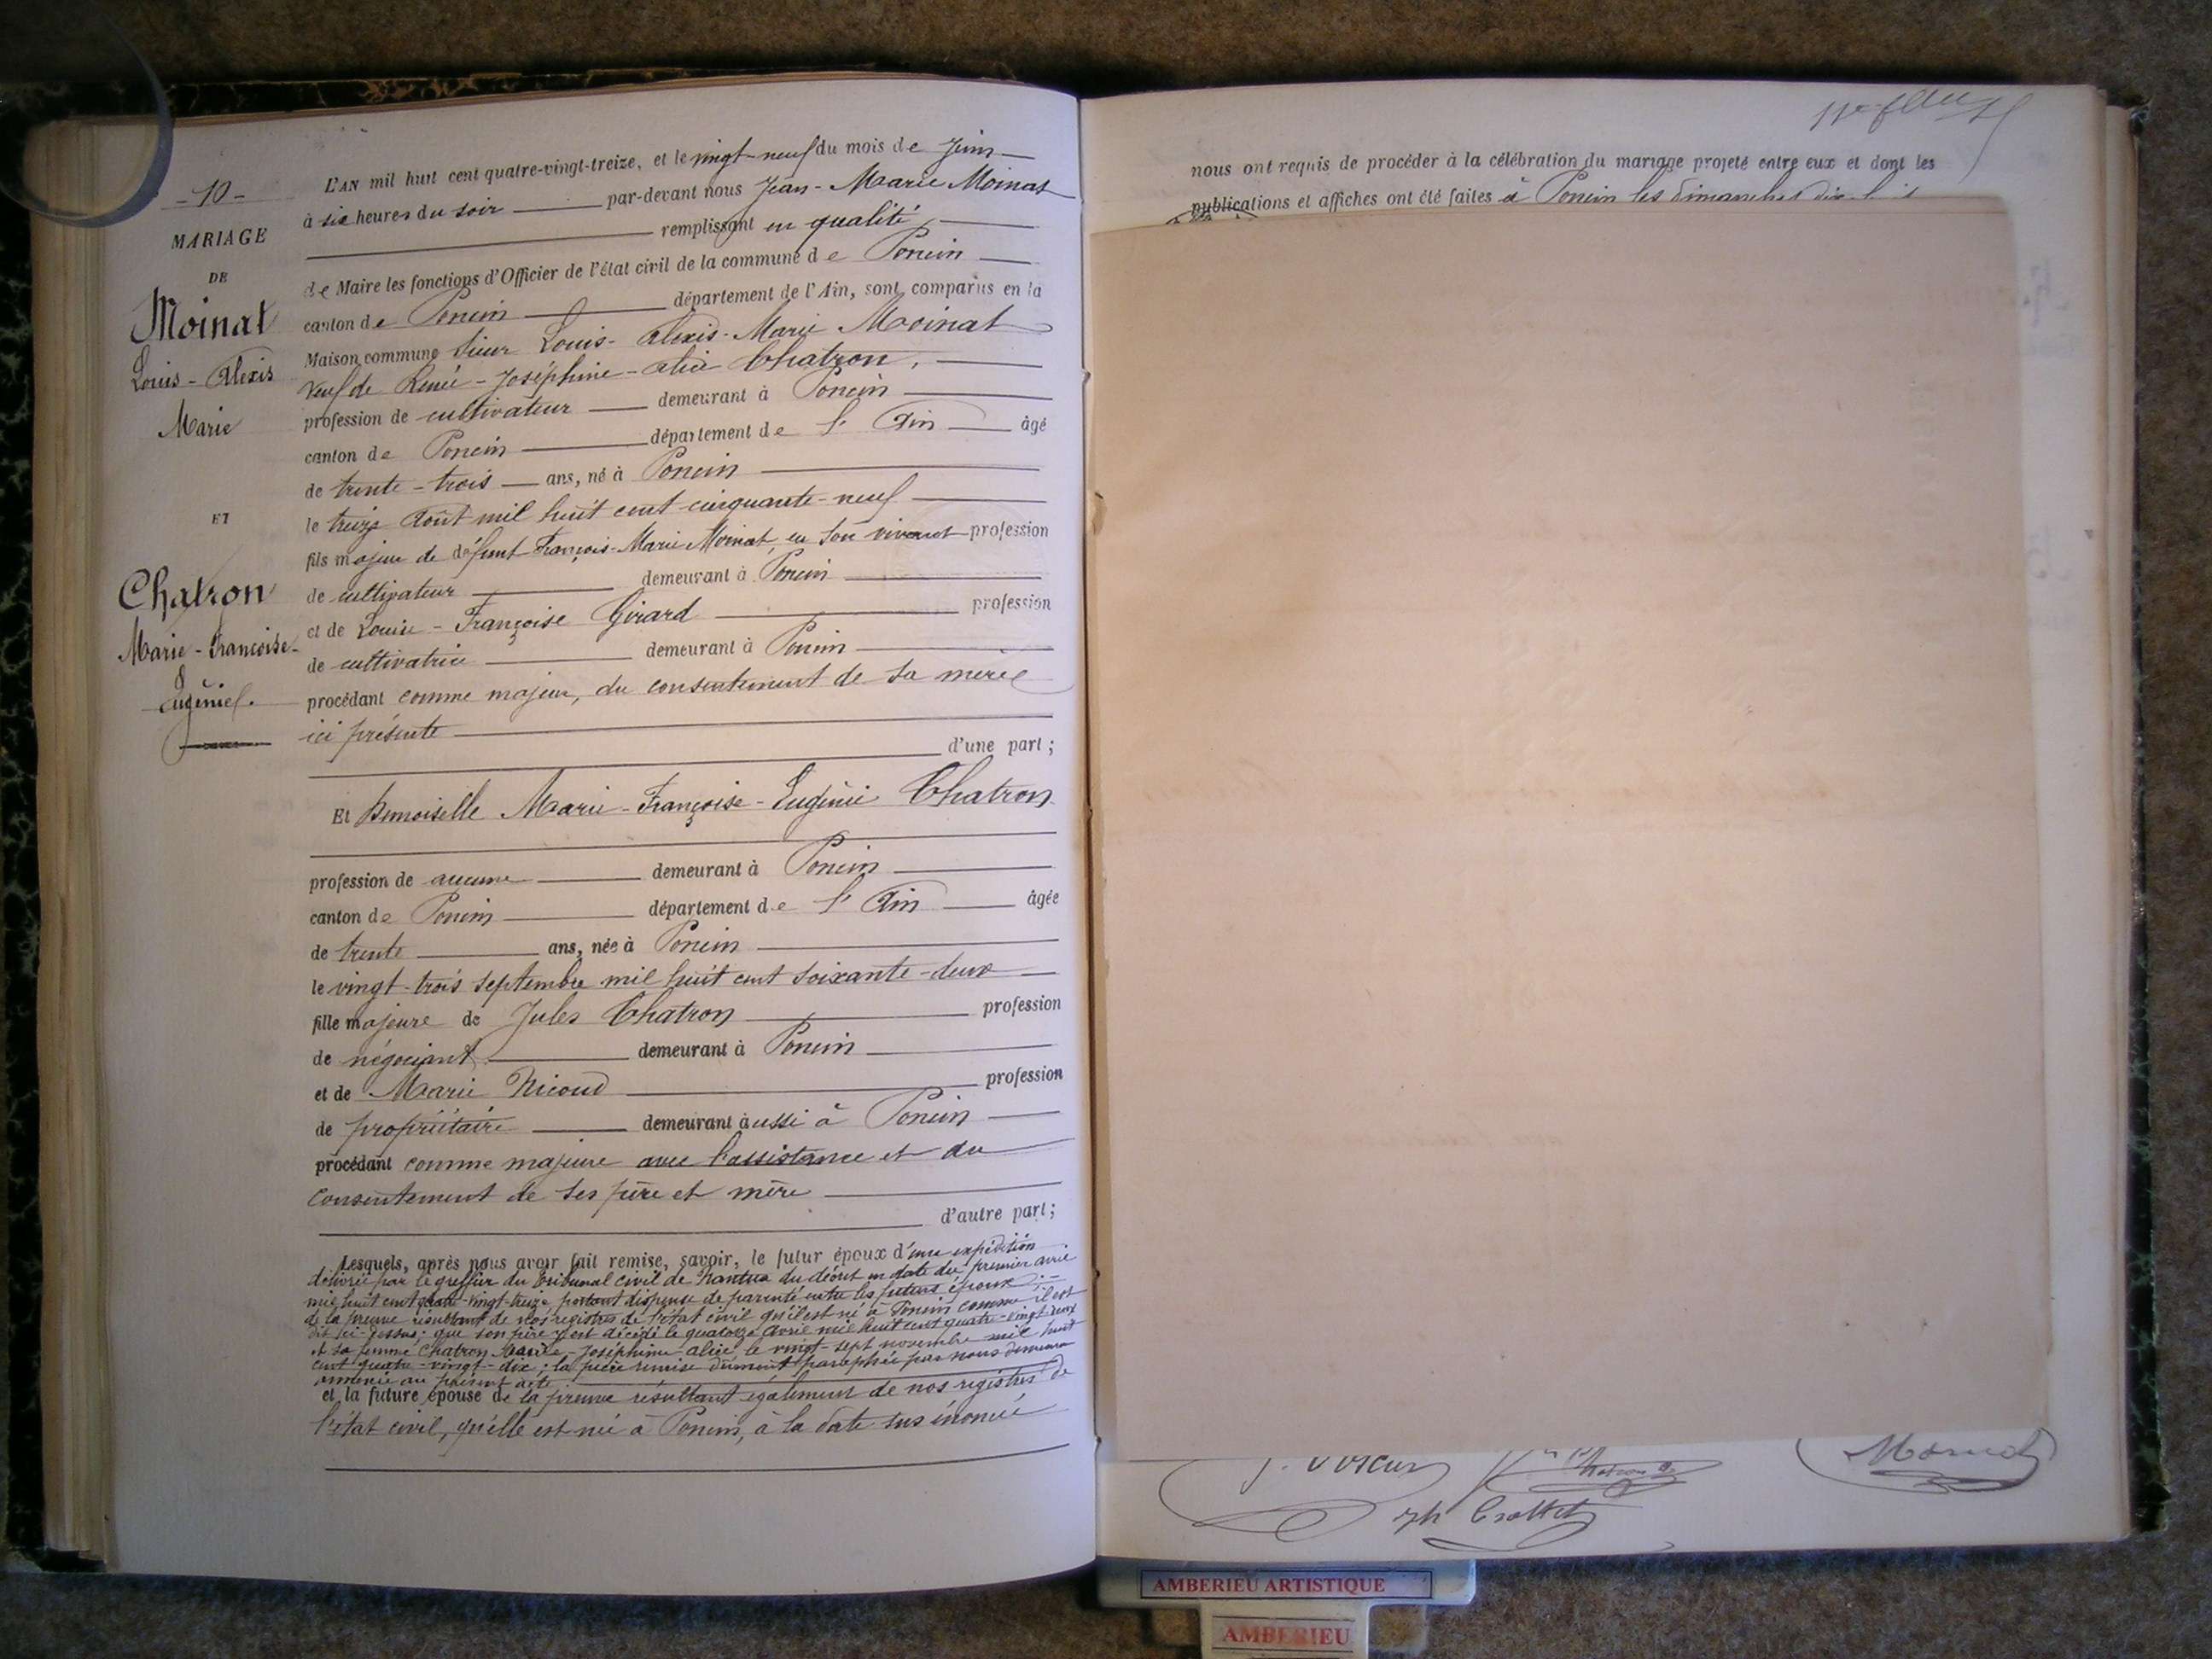 - 10 -
MARIAGE
DE
Moinat
Louis - Alexis
Marie
ET
Chatron
Marie - Françoise -
Eugénie.
L'AN mil huit cent quatre-vingt-treize, et le vingt-neuf du mois de Juin
à six heures du soir par-devant nous Jean-Marie Moinat
remplissant en qualité
de Maire les fonctions d'Officier de l'état civil de la commune de Poncin
canton de Poncin département de l'Ain, sont comparus en la
Maison commune Sieur Louis-Alexis-Marie Moinat
veuf de Renée-Joséphine-Alice Chatron,
profession de cultivateur demeurant à Poncin
canton de Poncin département de l'Ain âgé
de trente-trois ans, né à Poncin
le treize Août mil huit cent cinquante-neuf
fils majeur de défunt François-Marie Moinat, en son vivant profession
de cultivateur demeurant à Poncin
et de Louise-Françoise Girard profession
de cultivatrice demeurant à Poncin
procédant comme majeur, du consentement de sa mère
ici présente
d'une part;
Et Demoiselle Marie-Françoise-Eugénie Chatron
profession de aucune demeurant à Poncin
canton de Poncin département de l'Ain âgée
de trente ans, née à Poncin
le vingt-trois septembre mil huit cent soixante-deux
fille majeure de Jules Chatron profession
de négociant demeurant à Poncin
et de Marie Nicoud profession
de propriétaire demeurant aussi à Poncin
procédant comme majeure avec l'assistance et du
consentement de ses père et mère
d'autre part;
Lesquels, après nous avoir fait remise, savoir, le futur époux d'une expédition
délivrée par le greffier du tribunal civil de Nantua du décret en date du premier avril
mil huit cent quatre-vingt-treize portant dispense de parenté entre les futurs époux ; -
de la preuve résultant de nos registres de l'état civil qu'il est né à Poncin comme il est
dit ci-dessus ; que son père y est décédé le quatorze Avril mil huit cent quatre-vingt-deux
et sa femme Chatron Renée-Joséphine-Alice, le vingt-sept novembre mil huit
cent quatre-vingt-dix ; la pièce remise dûment paraphée par nous demeure
annexée au présent acte
et la future épouse de la preuve résultant également de nos registres de
l'état civil, qu'elle est née à Poncin, à la date sus énoncée
nous ont requis de procéder à la célébration du mariage projeté entre eux et dont les
publications et affiches ont été faites à Poncin les dimanches dix-huit
Moinat
Chatron
Jh Trottet
AMBERIEU ARTISTIQUE
AMBERIEU